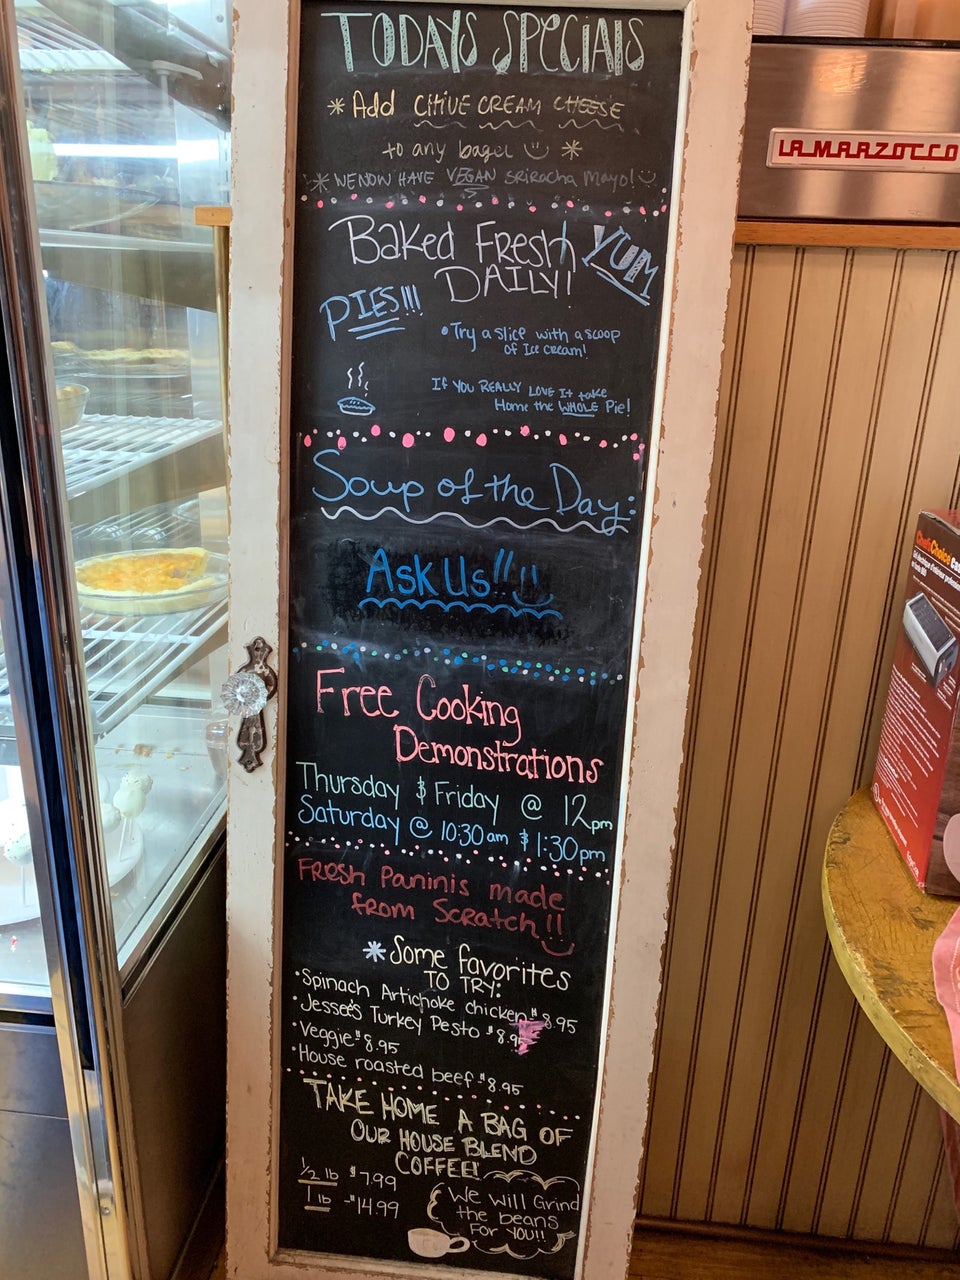 TODAYS SPECIALS
* Add CHIVE CREAM CHEESE
to any bagel *
* WE NOW HAVE VEGAN Sriracha Mayo!
Baked Fresh
DAILY!
YUM
PIES!!!
• Try a slice with a scoop
of Ice cream!
If YOU REALLY LOVE It take
Home the WHOLE Pie!
Soup of the Day:
Ask Us!!
Free Cooking
Demonstrations
Thursday & Friday @ 12pm
Saturday @ 10:30am & 1:30pm
FRESH Paninis made
from Scratch!!
* Some favorites
TO TRY:
• Spinach Artichoke chicken $8.95
• Jessee's Turkey Pesto $8.95
• Veggie $8.95
• House roasted beef $8.95
TAKE HOME A BAG OF
OUR HOUSE BLEND
COFFEE!
1/2 lb $7.99
1 lb - $14.99
We Will Grind
the beans
FOR YOU!!
LA MARZOCCO
Chef'sChoice